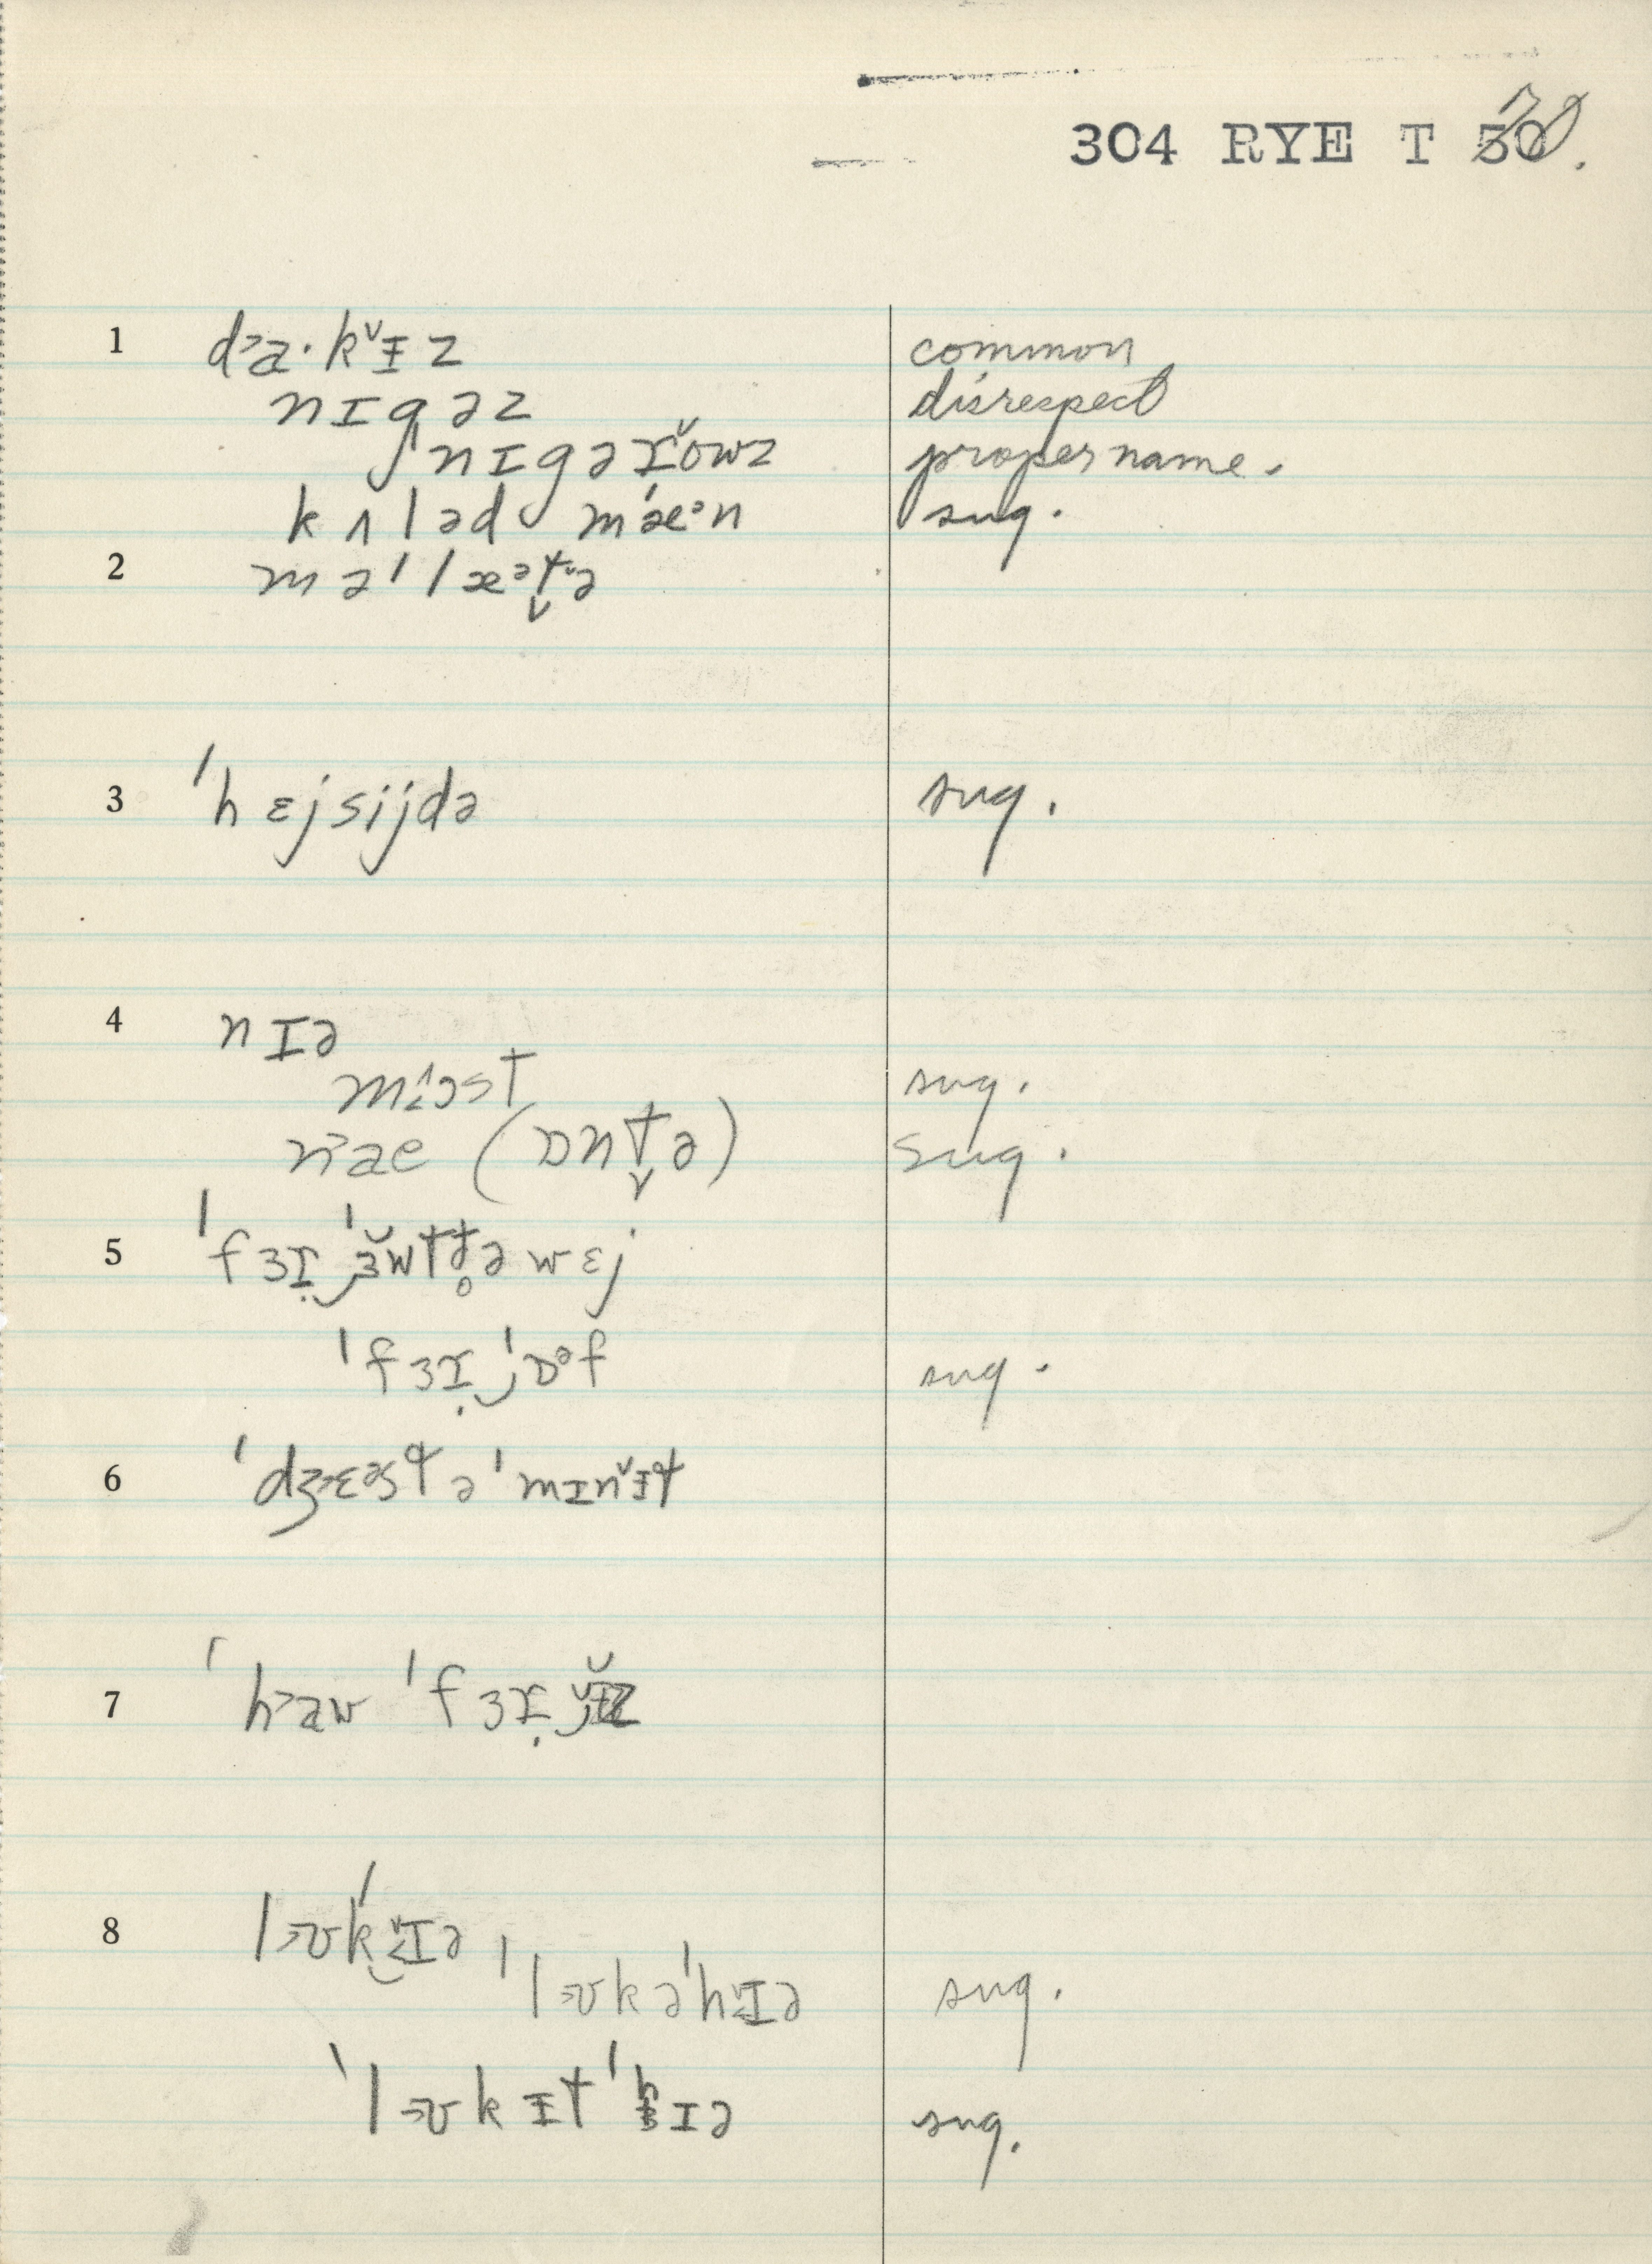 304 RYE T 70.
1 d˃a·kᵛᵻz common
nɪgəz disrespect
ˈnɪgərŏwz proper name.
kʌləd mæᵊn sug.
2 məˈlæᵊt̬ə
3 ˈhɛjsijdə sug.
4 nɪə
mɔst sug.
n˃ae (ɒnt̬ə) sug.
5 ˈfɜɪ ˈɜ̆wtt̥ə wɛj
ˈfɜɪ ˈɒᵊf sug.
6 ˈdʒɛᵊst ə ˈmɪnᵛᵻt
7 ˈh˃aw ˈfɜɪ
8 l˃ʊkˈɪə
ˈl˃ʊkəˈhɪə sug.
ˈl˃ʊkᵻtˈhɪə sug.